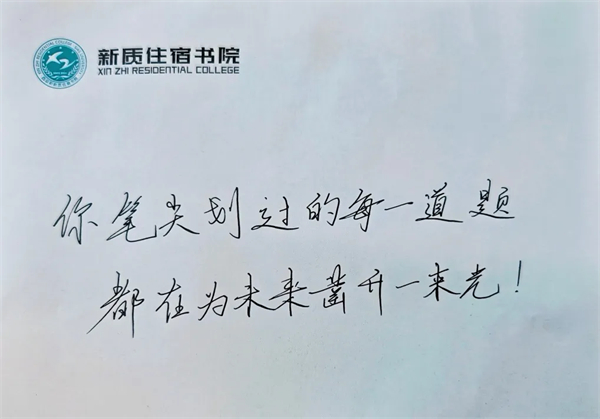 新质住宿书院
XIN ZHI RESIDENTIAL COLLEGE
你笔尖划过的每一道题
都在为未来凿开一束光！